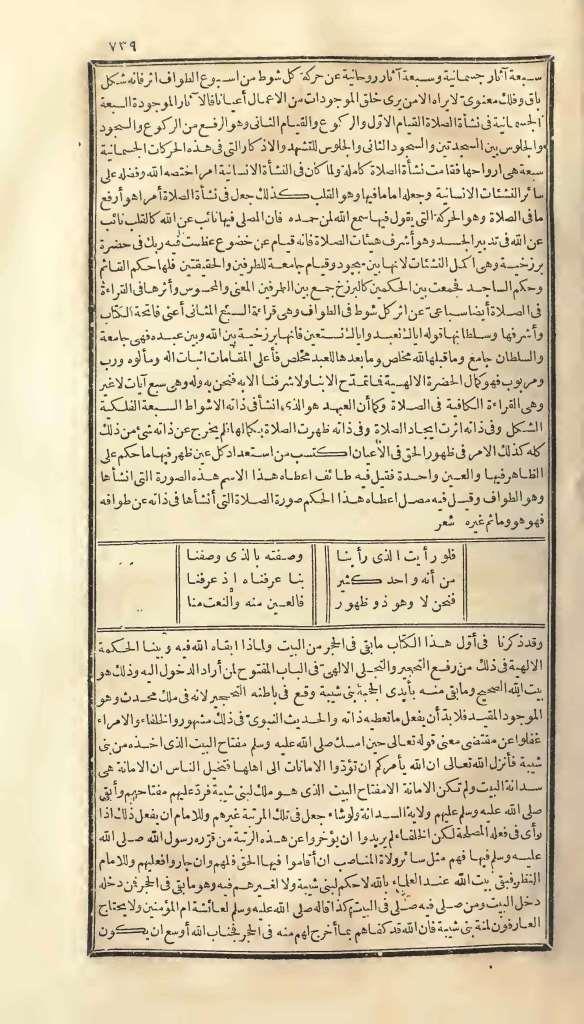 ٧٣٩
سبعة آثار جسمانية وسبعة آثار روحانية عن حركة كل شوط من اسبوع الطواف اثر فانه شكل
باق وفلك معنوى لا يراه الا من يرى خلق الموجودات من الاعمال أعيانا فالا آثار الموجودة السبعة
الجسمانية فى نشأة الصلاة القيام الاول والركوع والقيام الثانى وهو الرفع من الركوع والسجود
والجلوس بين السجدتين والسجود الثانى والجلوس للتشهد والاذكار التى فى هذه الحركات الجسمانية
سبعة هى ارواحها فقامت نشأة الصلاة كاملة ولما كان فى النشأة الانسانية امر اختصه الله وفضله على
سائر النشئات الانسانية وجعله اماما فيها وهو القلب كذلك جعل فى نشأة الصلاة أمرا هو أرفع
ما فى الصلاة وهو الحركة التى يقول فيها سمع الله لمن حمده فان المصلى فيها نائب عن الله كالقلب نائب
عن الله فى تدبير الجسد وهو أشرف هيئات الصلاة فانه قيام عن خضوع عظمت فيه ربك فى حضرة
برزخية وهى اكمل النشئات لانها بين سجود وقيام جامعة للطرفين والحقيقتين فلها حكم القائم
وحكم الساجد فجمعت بين الحكمين كالبرزخ جمع بين الطرفين المعنى والمحسوس وأثرها فى القراءة
فى الصلاة أيضا سباعى عن اثر كل شوط فى الطواف وهى قراءة السبع المثانى أعنى فاتحة الكتاب
وأشرفها وسلطانها قوله اياك نعبد واياك نستعين فانها برزخية بين الله وبين عبده فهى جامعة
والسلطان جامع وما قبلها لله مخلص وما بعدها للعبد مخلص فأعلى المقامات اثبات اله ومألوه ورب
ومربوب فهو كمال الحضرة الالهية فما تمدح الا بنا ولا شرفنا الا به فنحن به وله وهى سبع آيات لا غير
وهى القراءة الكافية فى الصلاة وكما أن العبد هو الذى انشأ فى ذاته الاشواط السبعة الفلكية
الشكل وفى ذاته اثرت ايجاد الصلاة وفى ذاته ظهرت الصلاة بكمالها فلم يخرج عن ذاته شئ من ذلك
كله كذلك الامر فى ظهور الحق فى الأعيان اكتسب من استعداد كل عين ظهر فيها ما حكم على
الظاهر فيها والعين واحدة فقيل فيه طائف اعطاه هذا الاسم هذه الصورة التى أنشأها
وهو الطواف وقيل فيه مصل اعطاه هذا الحكم صورة الصلاة التى أنشأها فى ذاته عن طوافه
فهو هو وما ثم غيره شعر
فلو رأيت الذى رأينا وصفته بالذى وصفنا
من أنه واحد كثير بنا عرفناه اذ عرفنا
فنحن لا وهو ذو ظهور فالعين منه والنعت منا
وقد ذكرنا فى أول هذا الكتاب ما بقى فى الحجر من البيت ولماذا ابقاه الله فيه وبينا الحكمة
الالهية فى ذلك من رفع التحجير والتجلى الالهى فى الباب المفتوح لمن أراد الدخول اليه وذلك هو
بيت الله الصحيح وما بقى منه بأيدى الحجبة بنى شيبة وقع فى باطنه التحجير لانه فى ملك محدث وهو
الموجود المقيد فلا بد أن يفعل ما تعطيه ذاته والحديث النبوى فى ذلك مشهور والخلفاء والامراء
غفلوا عن مقتضى معنى قوله تعالى حين امسك صلى الله عليه وسلم مفتاح البيت الذى اخذه من بنى
شيبة فأنزل الله تعالى ان الله يأمركم ان تؤدوا الامانات الى اهلها فتخيل الناس ان الامانة هى
سدانة البيت ولم تكن الامانة الا مفتاح البيت الذى هو ملك لبنى شيبة فرد عليهم مفتاحهم وأبقى
صلى الله عليه وسلم عليهم ولاية السدانة ولو شاء جعل فى تلك المرتبة غيرهم وللامام ان يفعل ذلك اذا
رأى فى فعله المصلحة لكن الخلفاء لم يريدوا ان يؤخروا عن هذه الرتبة من قرره رسول الله صلى الله
عليه وسلم فيها فهم مثل سائر ولاة المناصب ان أقاموا فيها الحق فلهم وان جاروا فعليهم وللامام
النظر فبقى بيت الله عند العلماء بالله لا حكم لبنى شيبة ولا لغيرهم فيه وهو ما بقى فى الحجر فمن دخله
دخل البيت ومن صلى فيه صلى فى البيت كذا قاله صلى الله عليه وسلم لعائشة ام المؤمنين ولا يحتاج
العارفون لمنة بنى شيبة فان الله قد كفاهم بما أخرج لهم منه فى الحجر فجناب الله أوسع ان يكون